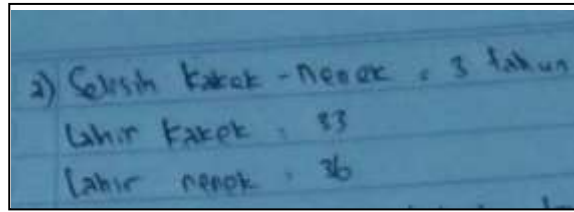 2) Selisih kakek - nenek = 3 tahun
Lahir kakek = 33
Lahir nenek = 36